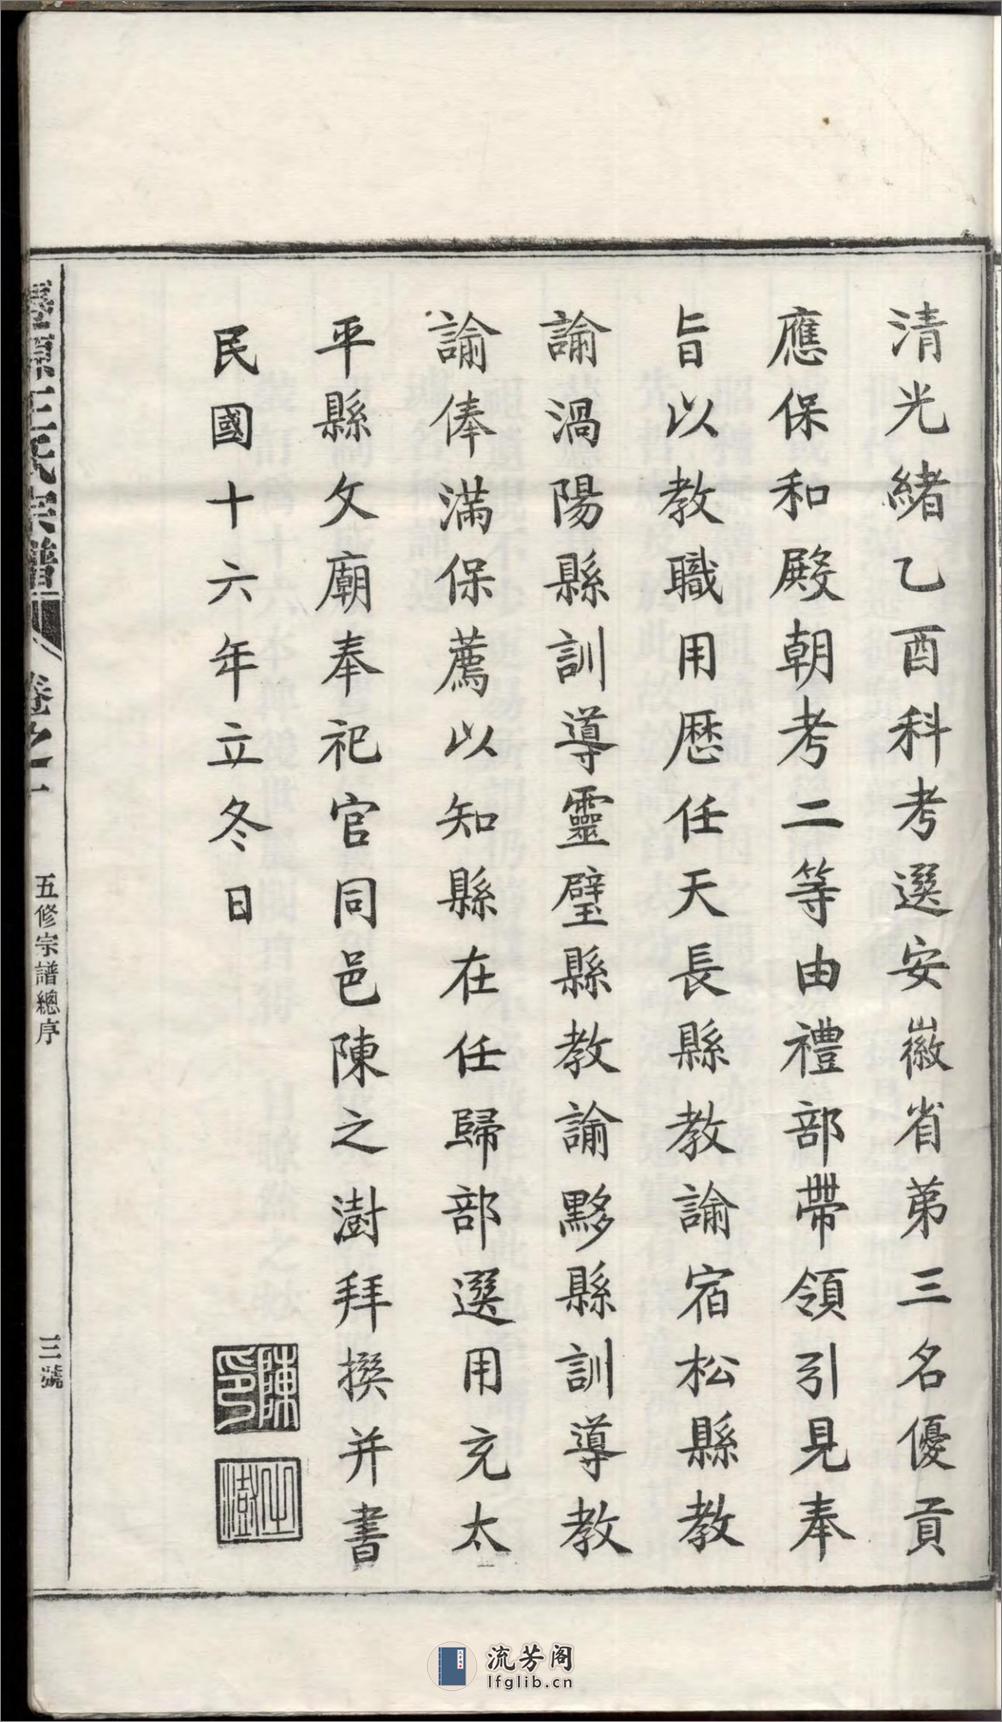 清光緒乙酉科考選安徽省第三名優貢
應保和殿朝考二等由禮部帶領引見奉
旨以教職用歷任天長縣教諭宿松縣教
諭渦陽縣訓導靈璧縣教諭黟縣訓導教
諭俸滿保薦以知縣在任歸部選用充太
平縣文廟奉祀官同邑陳之澍拜撰并書
民國十六年立冬日
陳印
之澍
王氏宗譜
卷之一
五修宗譜總序
三號
流芳阁
lfglib.cn